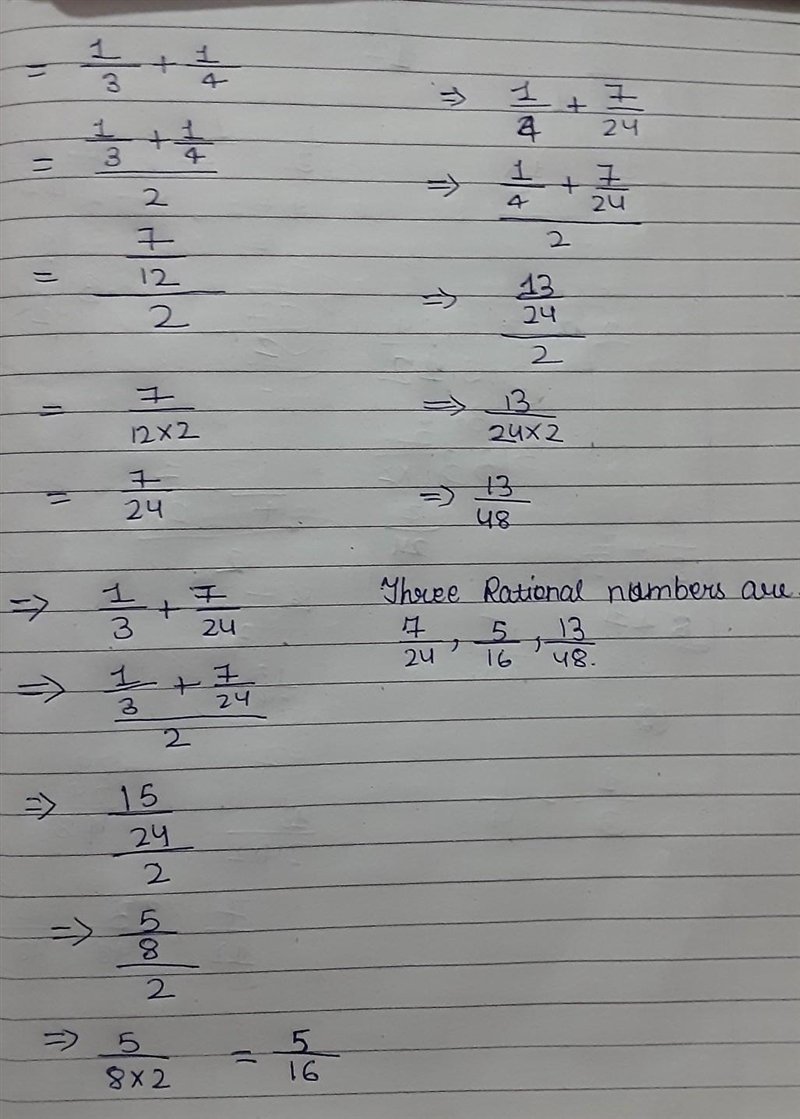 = 1/3 + 1/4
= (1/3 + 1/4)/2
= (7/12)/2
= 7/(12×2)
= 7/24
⇒ 1/3 + 7/24
⇒ (1/3 + 7/24)/2
⇒ (15/24)/2
⇒ (5/8)/2
⇒ 5/(8×2) = 5/16
⇒ 1/4 + 7/24
⇒ (1/4 + 7/24)/2
⇒ (13/24)/2
⇒ 13/(24×2)
⇒ 13/48
Three Rational numbers are
7/24, 5/16, 13/48.